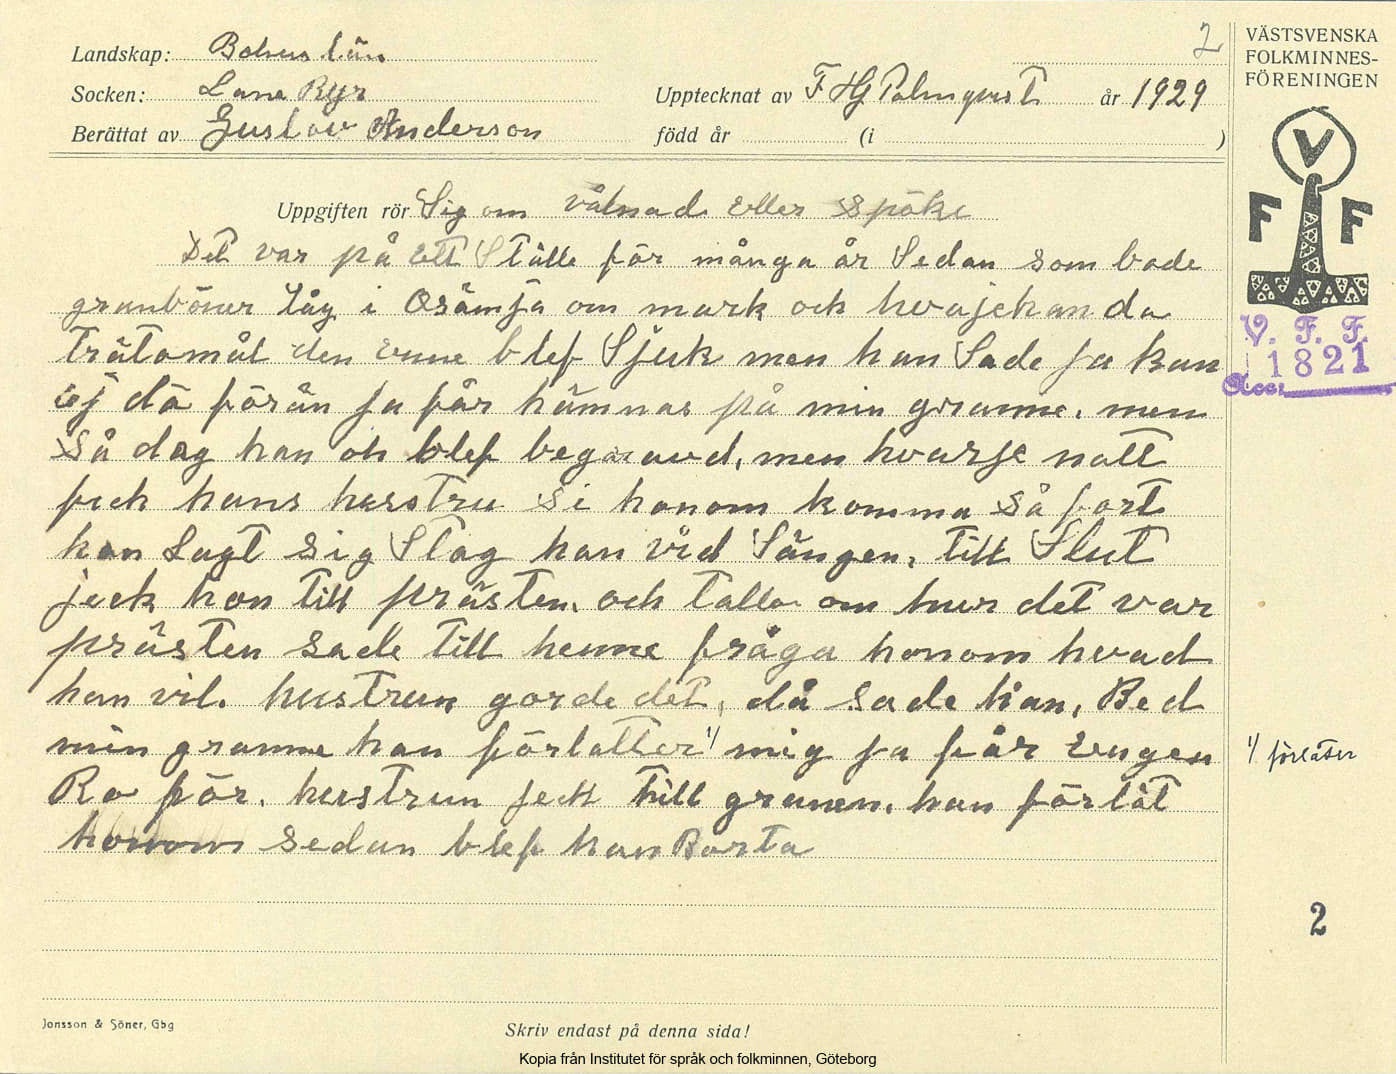 2
Landskap: Bohus län
Socken: Lane Ryr
Upptecknat av F Hj Palmqvist år 1929
Berättat av Gustav Anderson
född år (i )
VÄSTSVENSKA
FOLKMINNES-
FÖRENINGEN
V
F F
V. F. F.
1821
Acc.
Uppgiften rör Sig om vålnad eller spöke
Det var på ett Ställe för många år Sedan som bade
granböner låg i Osämja om mark och hvajehanda
trätomål den enne blef Sjuk men han Sade ja kan
ej dö förän ja får hämnas på min granne, men
Så dog han oh blef begravd, men hvarje natt
fick hans hustru Si honom komma Så fort
hon Lagt Sig Stog han vid Sängen, till Slut
jeck hon till prästen, och talla om hur det var
prästen sade till henne fråga honom hvad
han vil. hustrun gorde det, då sade han, Bed
min granne han förlatter 1/ mig ja får engen
1/ förlåter
Ro för. hustrun jeck till granen, han förlåt
honom sedan blef han Borta
2
Jonsson & Söner, Gbg
Skriv endast på denna sida!
Kopia från Institutet för språk och folkminnen, Göteborg